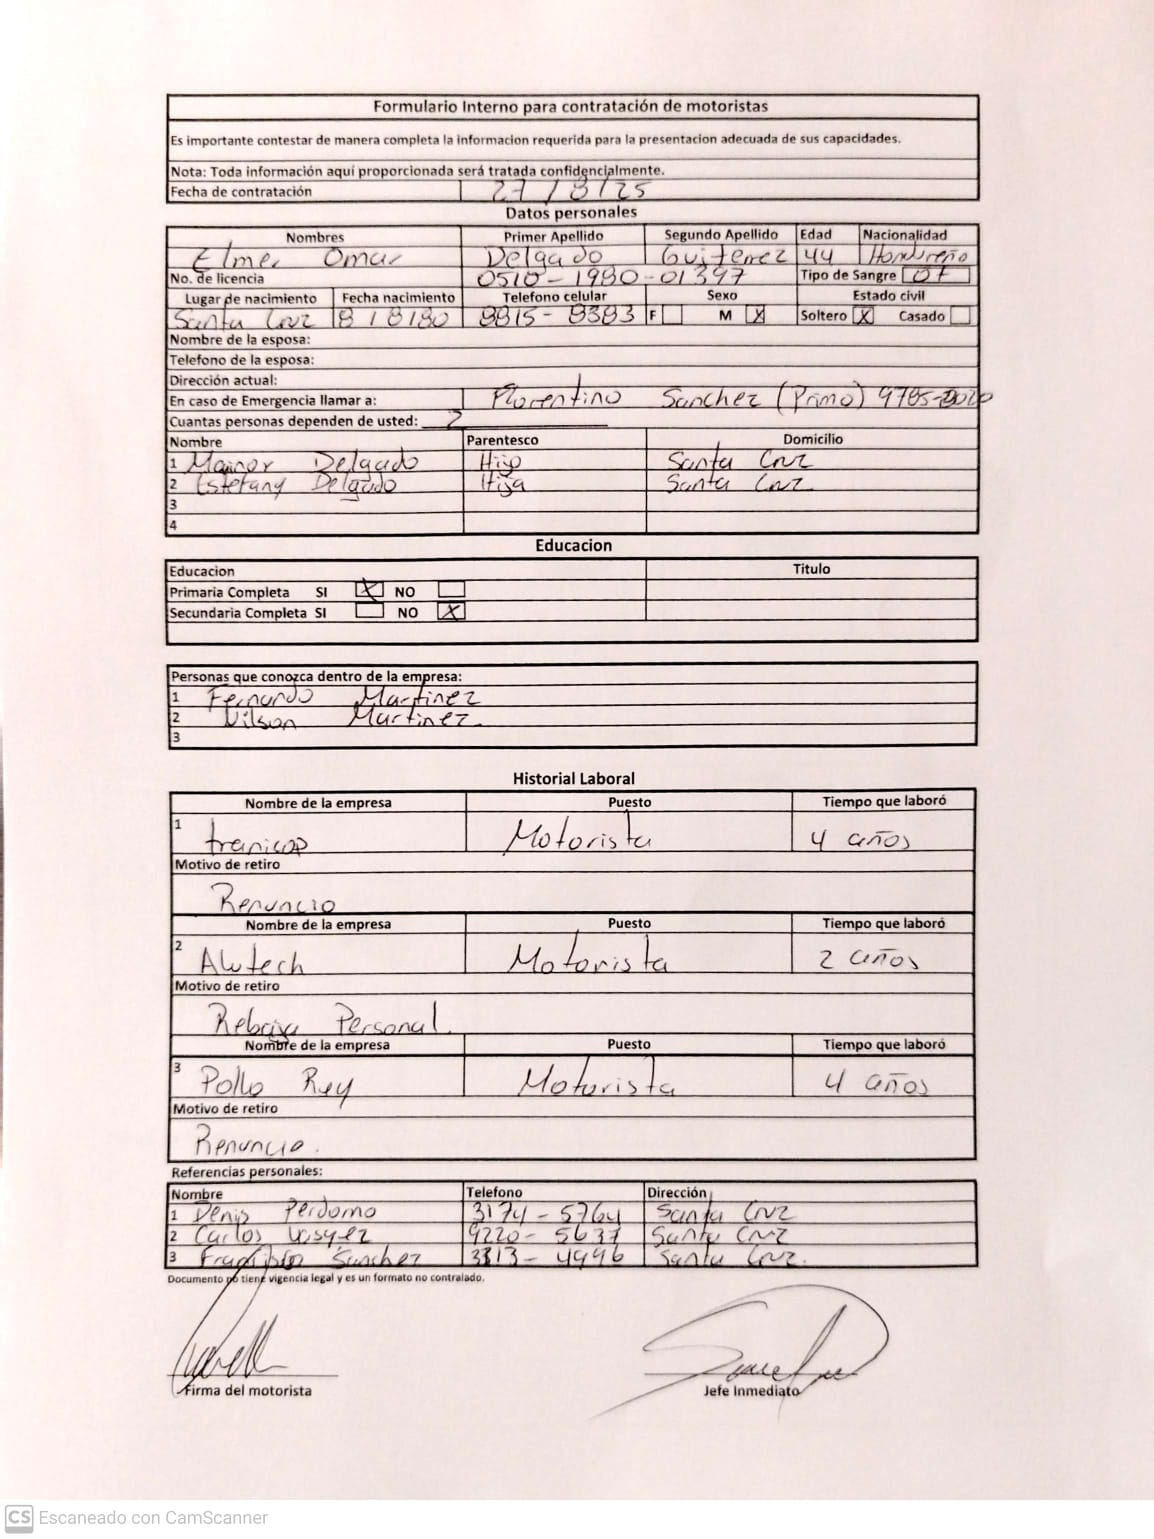 Formulario Interno para contratación de motoristas
Es importante contestar de manera completa la informacion requerida para la presentacion adecuada de sus capacidades.
Nota: Toda información aqui proporcionada será tratada confidencialmente.
Fecha de contratación 27/8/25
Datos personales
Nombres Primer Apellido Segundo Apellido Edad Nacionalidad
Elmer Omar Delgado Guiterrez 44 Hondureño
No. de licencia 0510-1980-01397 Tipo de Sangre
Lugar de nacimiento Fecha nacimiento Telefono celular Sexo Estado civil
Santa Cruz 8/8/80 8815-8383 F M X Soltero X Casado
Nombre de la esposa:
Telefono de la esposa:
Dirección actual:
En caso de Emergencia llamar a: Florentino Sanchez (Primo)
Cuantas personas dependen de usted: 2
Nombre Parentesco Domicilio
1 Mainor Delgado Hijo Santa Cruz
2 Estefany Delgado Hija Santa Cruz
3
4
Educacion
Educacion Titulo
Primaria Completa SI X NO
Secundaria Completa SI NO X
Personas que conozca dentro de la empresa:
1 Fernando Martinez
2 Wilson Martinez.
3
Historial Laboral
Nombre de la empresa Puesto Tiempo que laboró
1 Motorista 4 años
Motivo de retiro
Renuncio
Nombre de la empresa Puesto Tiempo que laboró
2 Alutech Motorista 2 años
Motivo de retiro
Rebaja Personal.
Nombre de la empresa Puesto Tiempo que laboró
3 Pollo Rey Motorista 4 años
Motivo de retiro
Renuncio.
Referencias personales:
Nombre Telefono Dirección
1 Denis Perdomo 3174-5764 Santa Cruz
2 Carlos Vasquez 9220-5637 Santa Cruz
3 Sanchez 3313-4996 Santa Cruz.
Documento no tiene vigencia legal y es un formato no contralado.
Firma del motorista Jefe Inmediato
CS Escaneado con CamScanner